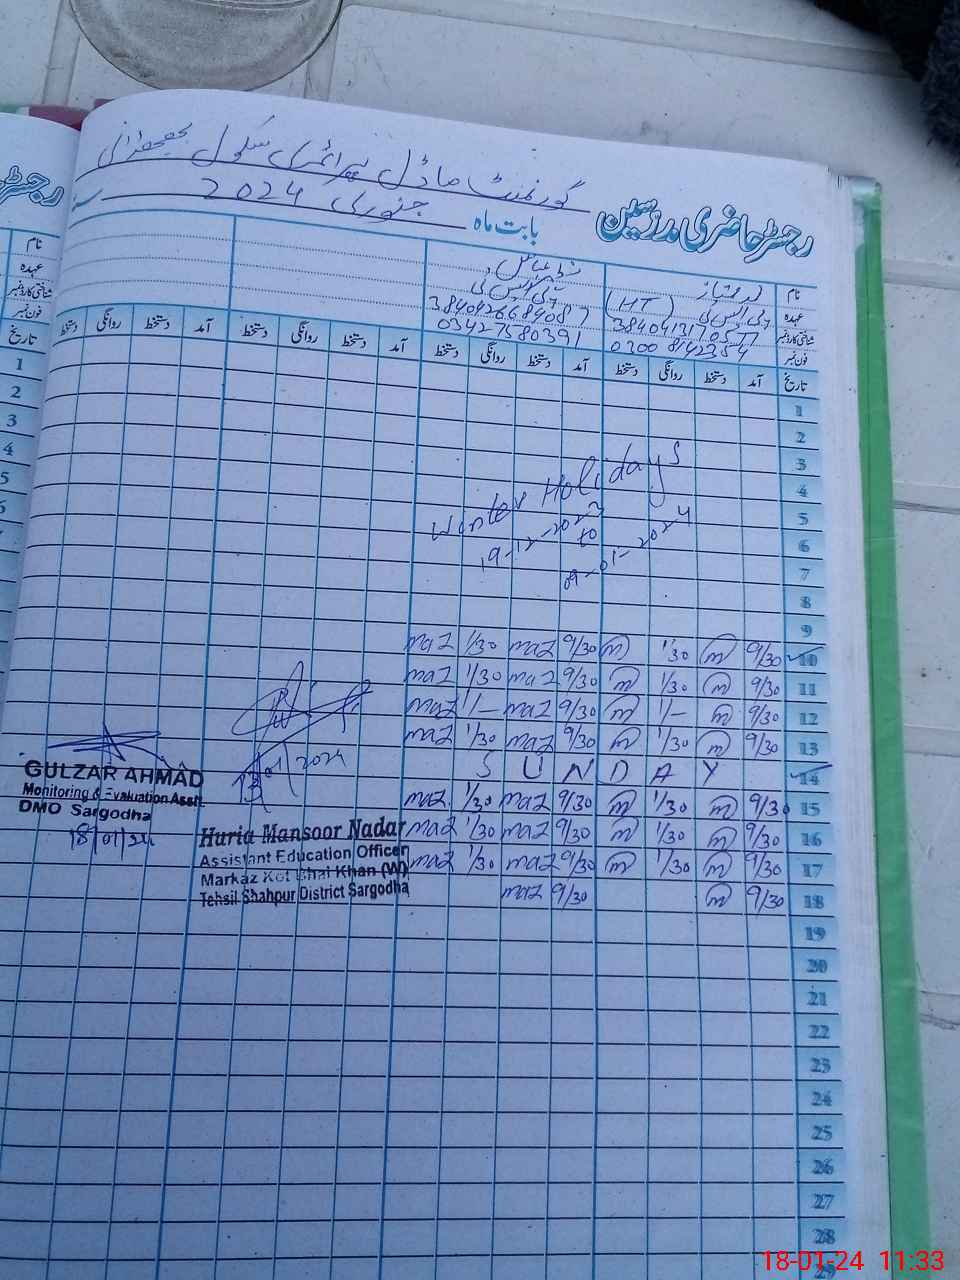 گورنمنٹ ماڈل پرائمری سکول
رجسٹر حاضری مدرسین
بابت ماہ جنوری 2024
نام
عہدہ (HT) پی ایس ٹی
شناختی کارڈ نمبر 3840426684087
فون نمبر 0300 8142354 03427580391
تاریخ آمد دستخط روانگی دستخط آمد دستخط روانگی دستخط آمد دستخط روانگی دستخط
1
2
3
4
5
6
7
8
9
Winter Holidays
19-12-2023
to
09-01-2024
10 9/30 m 1/30 m 9/30 maz 1/30 maz
11 9/30 m 1/30 m 9/30 maz 1/30 maz
12 9/30 m 1/- m 9/30 maz 1/- maz
13 9/30 m 1/30 m 9/30 maz 1/30 maz
14 SUNDAY
15 9/30 m 1/30 m 9/30 maz 1/30 maz
16 9/30 m 1/30 m 9/30 maz 1/30 maz
17 9/30 m 1/30 m 9/30 maz 1/30 maz
18 9/30 m 9/30 maz
19
20
21
22
23
24
25
26
27
28
29
13/01/2024
Huria Mansoor Nadar
Assistant Education Officer
Markaz Kot Bhai Khan (W)
Tehsil Shahpur District Sargodha
GULZAR AHMAD
Monitoring & Evaluation Asstt.
DMO Sargodha
18/01/24
رجسٹر
نام
عہدہ
شناختی کارڈ نمبر
فون نمبر
تاریخ
1
2
3
4
5
18-01-24 11:33